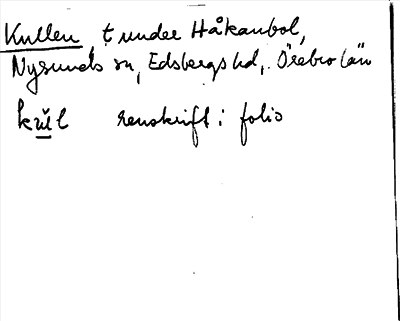 Kullen, t under Håkanbol,
Nysunds sn, Edsbergs hd, Örebro län
kŭl renskrift i folio